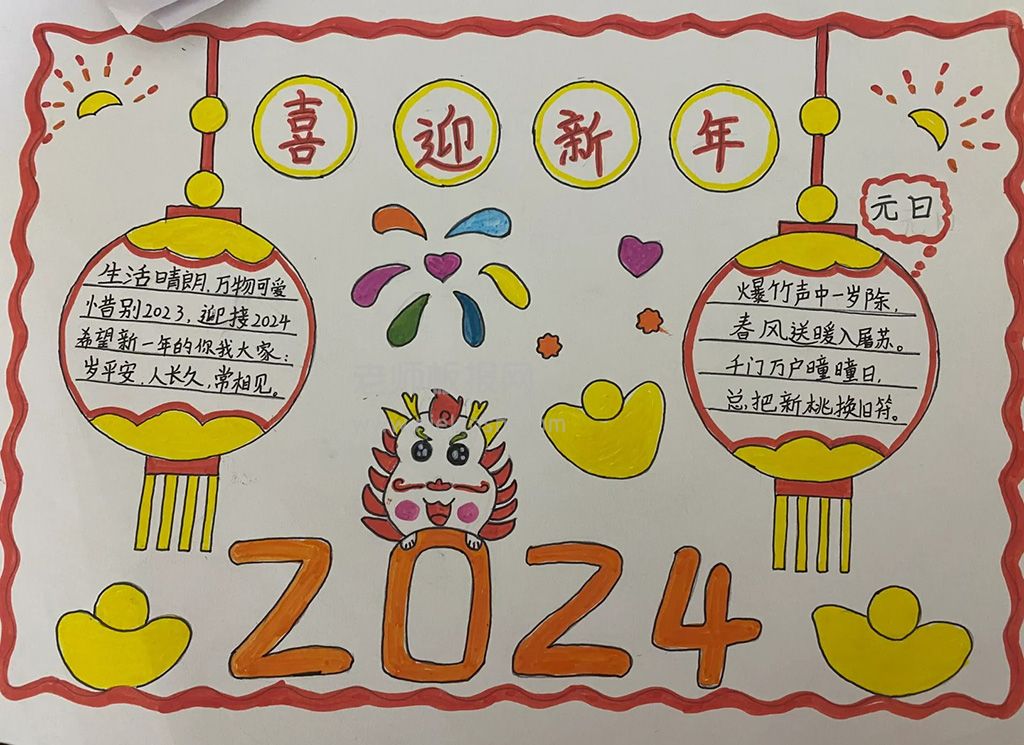 喜迎新年
元日
生活晴朗,万物可爱
惜别2023,迎接2024
希望新一年的你我大家:
岁平安,人长久,常相见。
爆竹声中一岁除,
春风送暖入屠苏。
千门万户曈曈日,
总把新桃换旧符。
2024